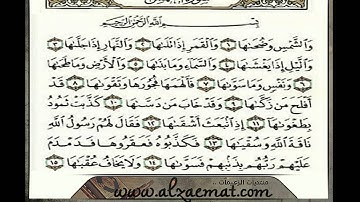 بِسْمِ اللَّهِ الرَّحْمَٰنِ الرَّحِيمِ
وَالشَّمْسِ وَضُحَىٰهَا ١ وَالْقَمَرِ إِذَا تَلَىٰهَا ٢ وَالنَّهَارِ إِذَا جَلَّىٰهَا ٣
وَاللَّيْلِ إِذَا يَغْشَىٰهَا ٤ وَالسَّمَاءِ وَمَا بَنَىٰهَا ٥ وَالْأَرْضِ وَمَا طَحَىٰهَا
٦ وَنَفْسٍ وَمَا سَوَّىٰهَا ٧ فَأَلْهَمَهَا فُجُورَهَا وَتَقْوَىٰهَا ٨ قَدْ
أَفْلَحَ مَن زَكَّىٰهَا ٩ وَقَدْ خَابَ مَن دَسَّىٰهَا ١٠ كَذَّبَتْ ثَمُودُ
بِطَغْوَىٰهَا ١١ إِذِ انۢبَعَثَ أَشْقَىٰهَا ١٢ فَقَالَ لَهُمْ رَسُولُ اللَّهِ
نَاقَةَ اللَّهِ وَسُقْيَٰهَا ١٣ فَكَذَّبُوهُ فَعَقَرُوهَا فَدَمْدَمَ
عَلَيْهِمْ رَبُّهُم بِذَنۢبِهِمْ فَسَوَّىٰهَا ١٤ وَلَا يَخَافُ عُقْبَٰهَا ١٥
www.alzaemat.com